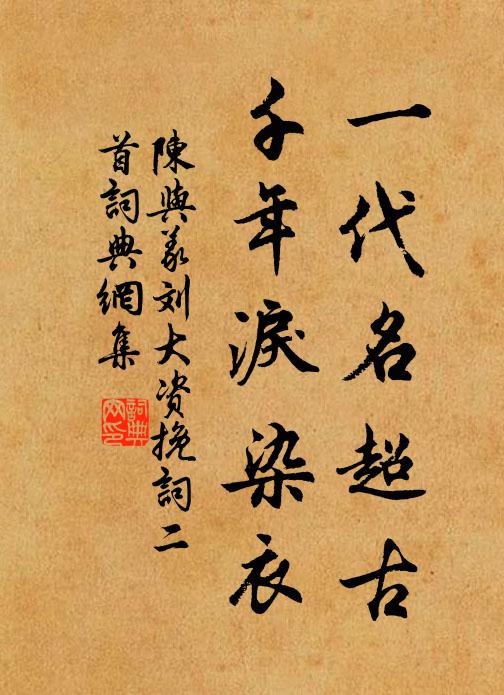 一代名超古
千年淚染衣
陳與義刘大资挽詞二
首詞典網集
詞典
网印